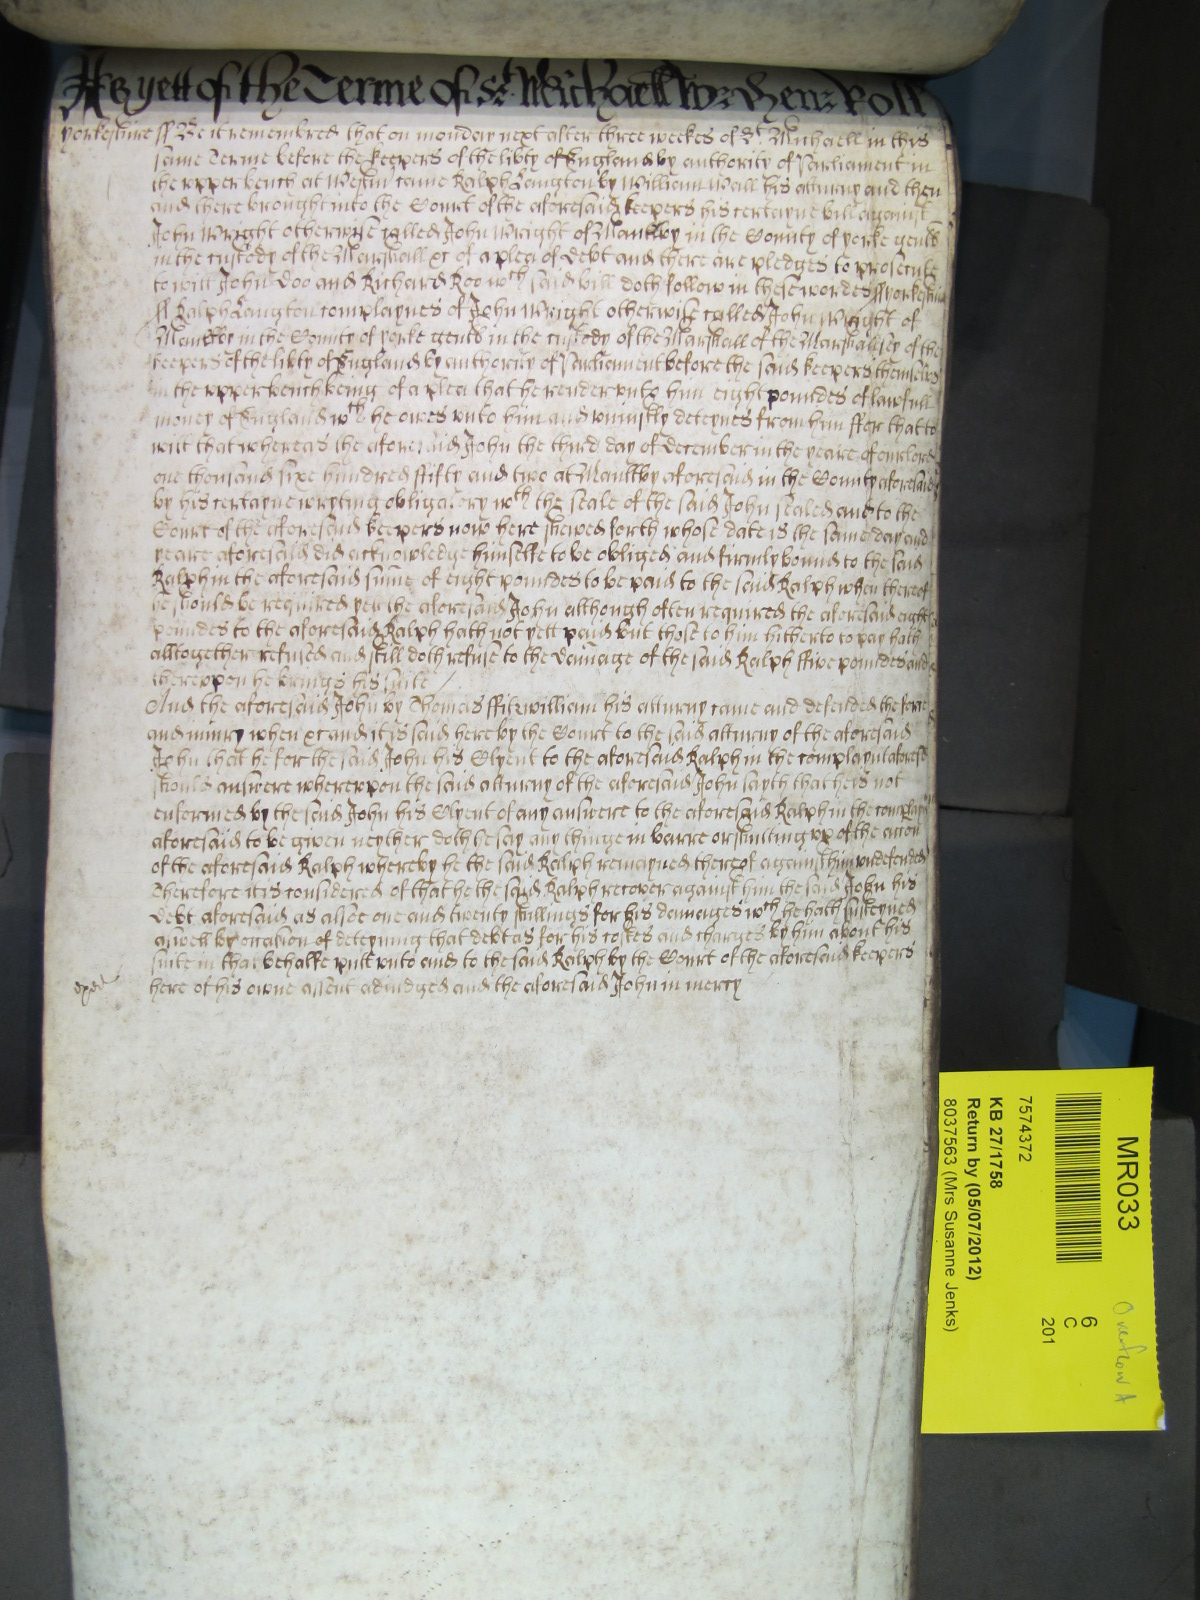 As yett of the Terme of St Michaell Wr: Hen: Roll
Yorkeshire ss Be it remembred that on monday next after three weekes of St. Michaell in this
same Terme before the keepers of the libty of England by authority of Parliament in
the vpper bench at Westm came Ralph Langton by William Wall his atturny and then
and there brought into the Court of the aforesaid keepers his certayne bill against
John Wright otherwise called John Wright of Maultby in the County of yorke gent
in the custody of the Marshall &c of a plea of debt and there are pledges to prosecute
to witt John Doo and Richard Roo wch said bill doth follow in these wordes ss yorkeshire
ss Ralph Langton complaynes of John Wright otherwise called John Wright of
Maultby in the County of yorke gent in the custody of the Marshall of the Marshalsey of the
keepers of the libty of England by authority of Parliament before the said keepers themselves
in the vpper bench being of a plea that he render vnto him eight poundes of lawfull
money of England wch he owes vnto him and vniustly deteynes from him ffor that to
witt that whereas the aforesaid John the third day of december in the yeare of our lord
one thousand sixe hundred ffifty and two at Maultby aforesaid in the County aforesaid
by his certayne wryting obligatory wth the seale of the said John sealed and to the
Court of the aforesaid keepers now here shewed forth whose date is the same day and
yeare aforesaid did acknowledge himselfe to be obliged and firmly bound to the said
Ralph in the aforesaid summe of eight poundes to be paid to the said Ralph when thereof
he should be required yett the aforesaid John although often required the aforesaid eight
poundes to the aforesaid Ralph hath not yett paid but those to him hitherto to pay hath
alltogether refused and still doth refuse to the damage of the said Ralph ffive poundes and
therevpon he brings his suite
And the aforesaid John by Thomas ffitzwilliam his atturny came and defended the force
and iniury when &c and it is said here by the Court to the said atturny of the aforesaid
John that he for the said John his Clyent to the aforesaid Ralph in the complaynt aforesd
should answere wherevpon the said atturny of the aforesaid John sayth that he is not
enformed by the said John his Clyent of any answere to the aforesaid Ralph in the complaynt
aforesaid to be given neyther doth he say any thinge in barre or shutting vp of the accon
of the aforesaid Ralph whereby he the said Ralph remayned thereof against him vndefended
Therefore it is considered of that he the said Ralph recover against him the said John his
debt aforesaid as alsoe one and twenty shillings for his damages wch he hath susteyned
aswell by occasion of deteyning that debt as for his costes and charges by him about his
suite in that behalfe putt vnto and to the said Ralph by the Court of the aforesaid keepers
here of his owne assent adiudged and the aforesaid John in mercy
MR033
7574372
KB 27/1758
Return by (05/07/2012)
8037563 (Mrs Susanne Jenks)
6
C
201
Overflow A